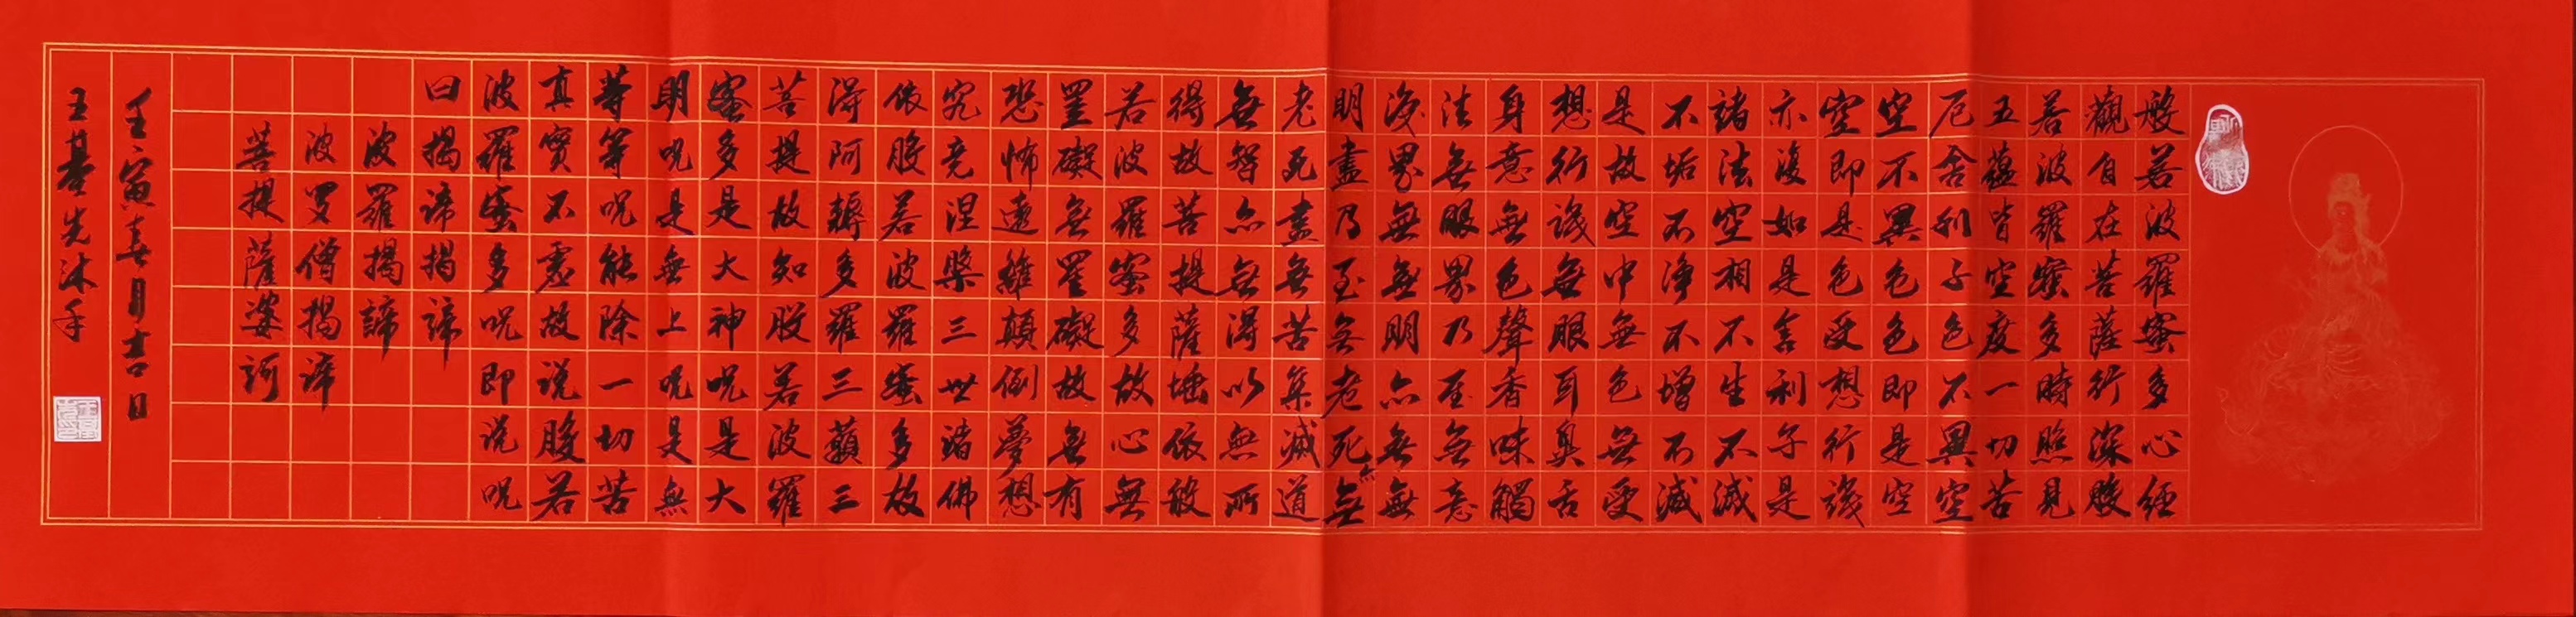 般若波羅蜜多心經
觀自在菩薩行深般
若波羅蜜多時照見
五蘊皆空度一切苦
厄舍利子色不異空
空不異色色即是空
空即是色受想行識
亦復如是舍利子是
諸法空相不生不滅
不垢不淨不增不減
是故空中無色無受
想行識無眼耳鼻舌
身意無色聲香味觸
法無眼界乃至無意
識界無無明亦無無
明盡乃至無老死亦無
老死盡無苦集滅道
無智亦無得以無所
得故菩提薩埵依般
若波羅蜜多故心無
罣礙無罣礙故無有
恐怖遠離顛倒夢想
究竟涅槃三世諸佛
依般若波羅蜜多故
得阿耨多羅三藐三
菩提故知般若波羅
蜜多是大神咒是大
明咒是無上咒是無
等等咒能除一切苦
真實不虛故說般若
波羅蜜多咒即說咒
曰揭諦揭諦
波羅揭諦
波罗僧揭諦
菩提薩婆訶
壬寅春月吉日
王先沐手